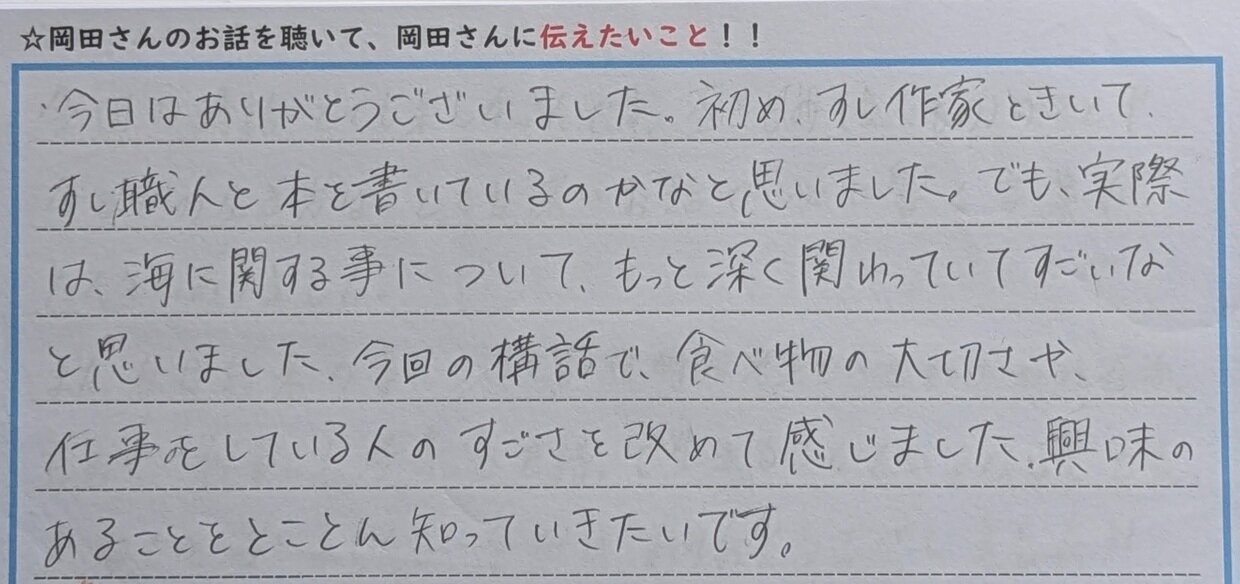 ☆岡田さんのお話を聴いて、岡田さんに伝えたいこと！！
今日はありがとうございました。初め、すし作家ときいて、
すし職人と本を書いているのかなと思いました。でも、実際
は、海に関する事について、もっと深く関わっていてすごいな
と思いました。今回の構話で、食べ物の大切さや、
仕事をしている人のすごさを改めて感じました。興味の
あることをとことん知っていきたいです。